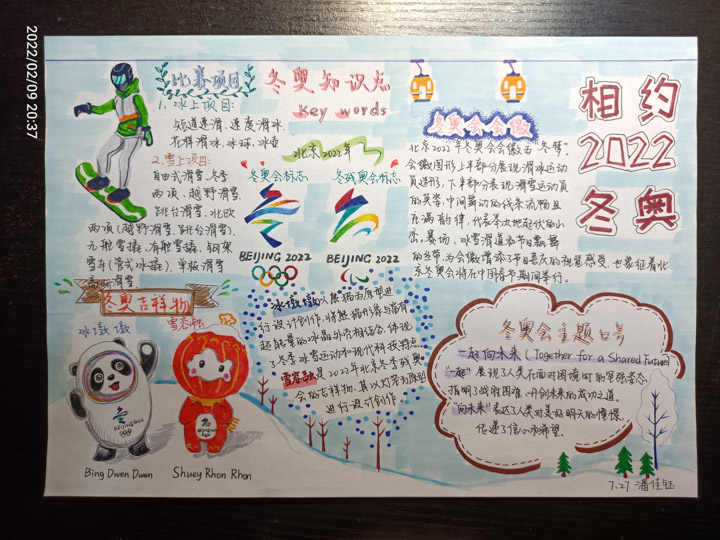 2022/02/09 20:37
比赛项目
1、冰上项目:
短道速滑、速度滑冰
花样滑冰、冰球、冰壶
2、雪上项目:
自由式滑雪、冬季
两项、越野滑雪、
跳台滑雪、北欧
两项(越野滑雪、跳台滑雪)、
无舵雪橇、有舵雪橇、钢架
雪车(管式冰橇)、单板滑雪
高山滑雪
冬奥知识点
Key words
北京2022年
冬奥会标志
冬残奥会标志
BEIJING 2022
BEIJING 2022
冬奥会会徽
北京2022年冬奥会会徽为“冬梦”,
会徽图形上半部分展现滑冰运动
员造形,下半部分表现滑雪运动员
的英姿。中间舞动的线条流畅且
充满韵律,代表举办地起伏的山
峦、赛场、冰雪滑道和节日飘舞
的丝带,为会徽增添了节日喜庆的视觉感受,也象征着北
京冬奥会将在中国春节期间举行。
相约
2022
冬奥
冬奥吉祥物
冰墩墩
雪容融
BEIJING 2022
Bing Dwen Dwen
Shuey Rhon Rhon
冰墩墩以熊猫为原型进
行设计创作,将熊猫形象与富有
超能量的冰晶外壳相结合,体现
了冬季冰雪运动和现代科技特点
雪容融是2022年北京冬季残奥
会的吉祥物,其以灯笼为原型
进行设计创作。
冬奥会主题口号
一起向未来(Together for a Shared Future)
“一起”展现了人类在面对困境时的坚强姿态,
指明了战胜困难、开创未来的成功之道。
“向未来”表达了人类对美好明天的憧憬,
传递了信心和希望。
7.27 潘佳钰